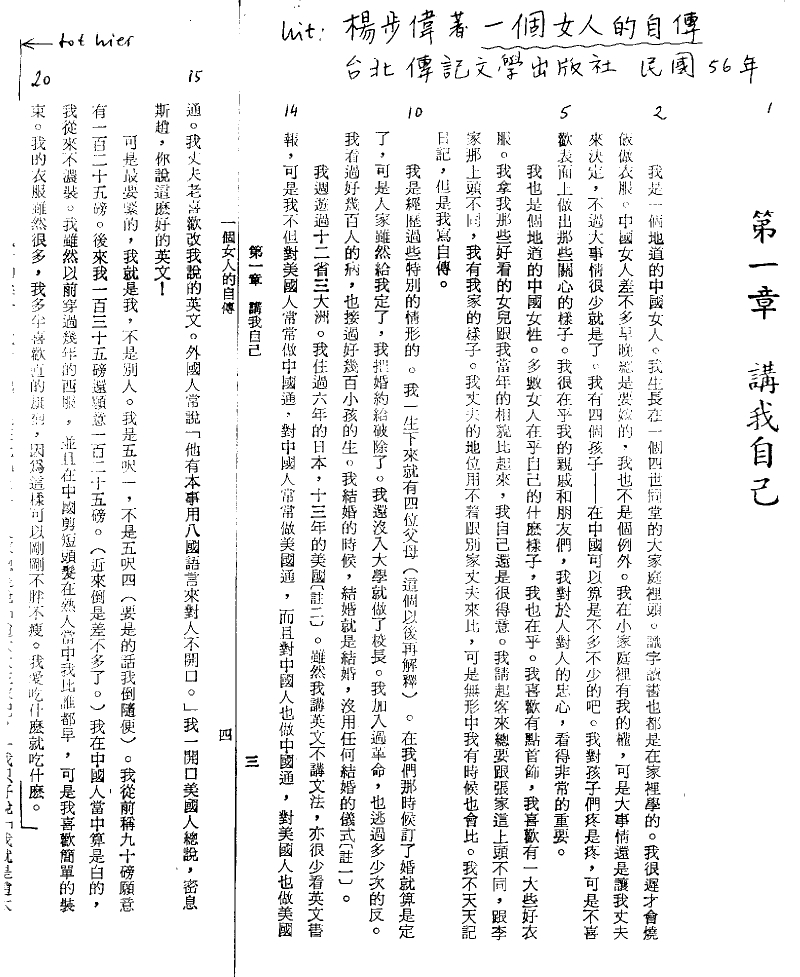 uit: 楊步偉著 一個女人的自傳
台北 傳記文學出版社 民國56年
tot hier
1
第一章 講我自己
2
我是一個地道的中國女人。我生長在一個四世同堂的大家庭裡頭。識字讀書也都是在家裡學的。我很遲才會燒
飯做衣服。中國女人差不多早晚總是要嫁的，我也不是個例外。我在小家庭裡有我的權，可是大事情還是讓我丈夫
來決定，不過大事情很少就是了。我有四個孩子——在中國可以算是不多不少的吧。我對孩子們疼是疼，可是不喜
5
歡表面上做出那些關心的樣子。我很在乎我的親戚和朋友們，我對於人對人的忠心，看得非常的重要。
我也是個地道的中國女性。多數女人在乎自己的什麼樣子，我也在乎。我喜歡有點首飾，我喜歡有一大些好衣
服。我拿我那些好看的女兒跟我當年的相貌比起來，我自己還是很得意。我請起客來總要跟張家這上頭不同，跟李
家那上頭不同，我有我家的樣子。我丈夫的地位用不着跟別家丈夫來比，可是無形中我有時候也會比。我不天天記
日記，但是我寫自傳。
10
我是經歷過些特別的情形的。我一生下來就有四位父母（這個以後再解釋）。在我們那時候訂了婚就算是定
了，可是人家雖然給我定了，我把婚約給破除了。我還沒入大學就做了校長。我加入過革命，也逃過多少次的反。
我看過好幾百人的病，也接過好幾百小孩的生。我結婚的時候，結婚就是結婚，沒用任何結婚的儀式〔註一〕。
我週遊過十二省三大洲。我住過六年的日本，十三年的美國〔註二〕。雖然我講英文不講文法，亦很少看英文書
14
報，可是我不但對美國人常常做中國通，對中國人常常做美國通，而且對中國人也做中國通，對美國人也做美國
第一章 講我自己
三
一個女人的自傳
四
15
通。我丈夫老喜歡改我說的英文。外國人常說「他有本事用八國語言來對人不開口。」我一開口美國人總說，密息
斯趙，你說這麼好的英文！
可是最要緊的，我就是我，不是別人。我是五呎一，不是五呎四（要是的話我倒隨便）。我從前稱九十磅願意
有一百二十五磅。後來我一百三十五磅還願意一百二十五磅。（近來倒是差不多了。）我在中國人當中算是白的，
我從來不濃裝。我雖然以前穿過幾年的西服，並且在中國剪短頭髮在熟人當中我比誰都早，可是我喜歡簡單的裝
20
束。我的衣服雖然很多，我多半喜歡直的旗袍，因爲這樣可以剛剛不胖不瘦。我愛吃什麼就吃什麼。